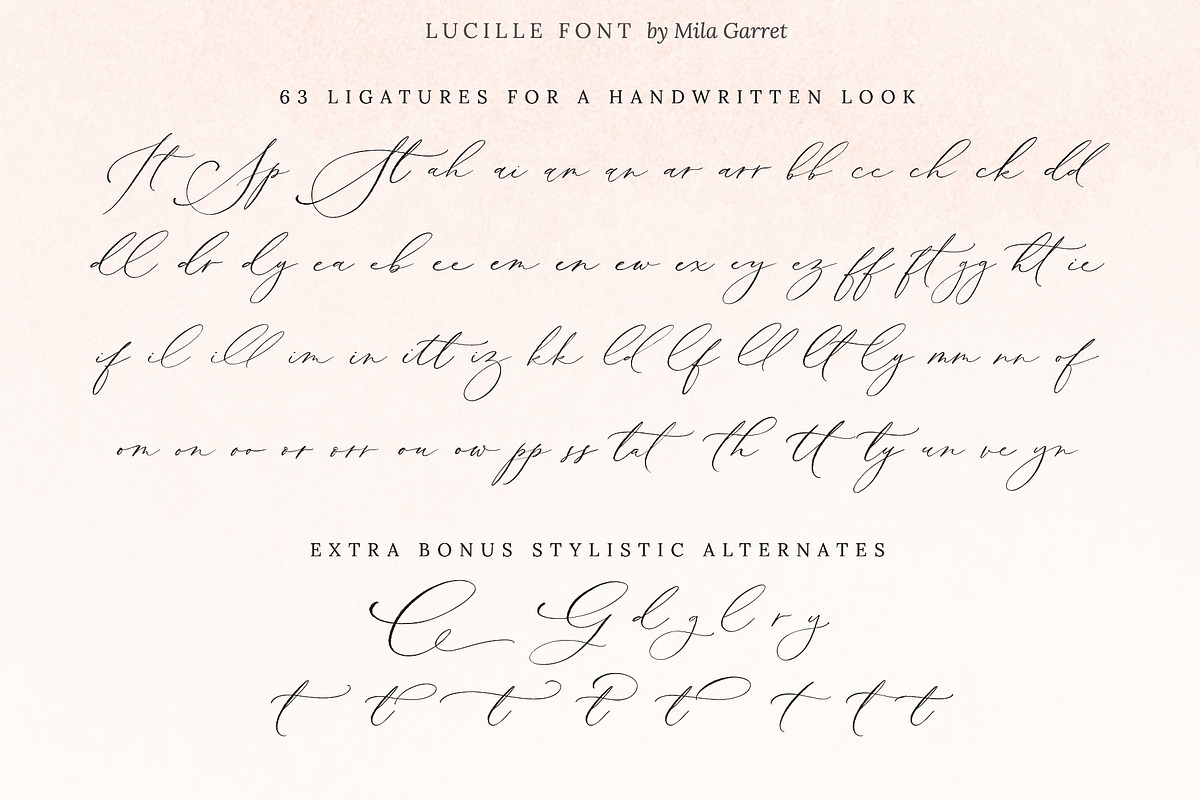 LUCILLE FONT by Mila Garret
63 LIGATURES FOR A HANDWRITTEN LOOK
It Sp St ah ai am an ar arr bb cc ch ck dd
dl dr dy ea eb ee em en ew ex ey ez ff ft gg ht ie
if il ill im in itt iz kk ld lf ll lt ly mm nn of
om on oo or orr ou ow pp ss tat th tt ty un ve yn
EXTRA BONUS STYLISTIC ALTERNATES
C e G d g l r y
t t t t t t t t